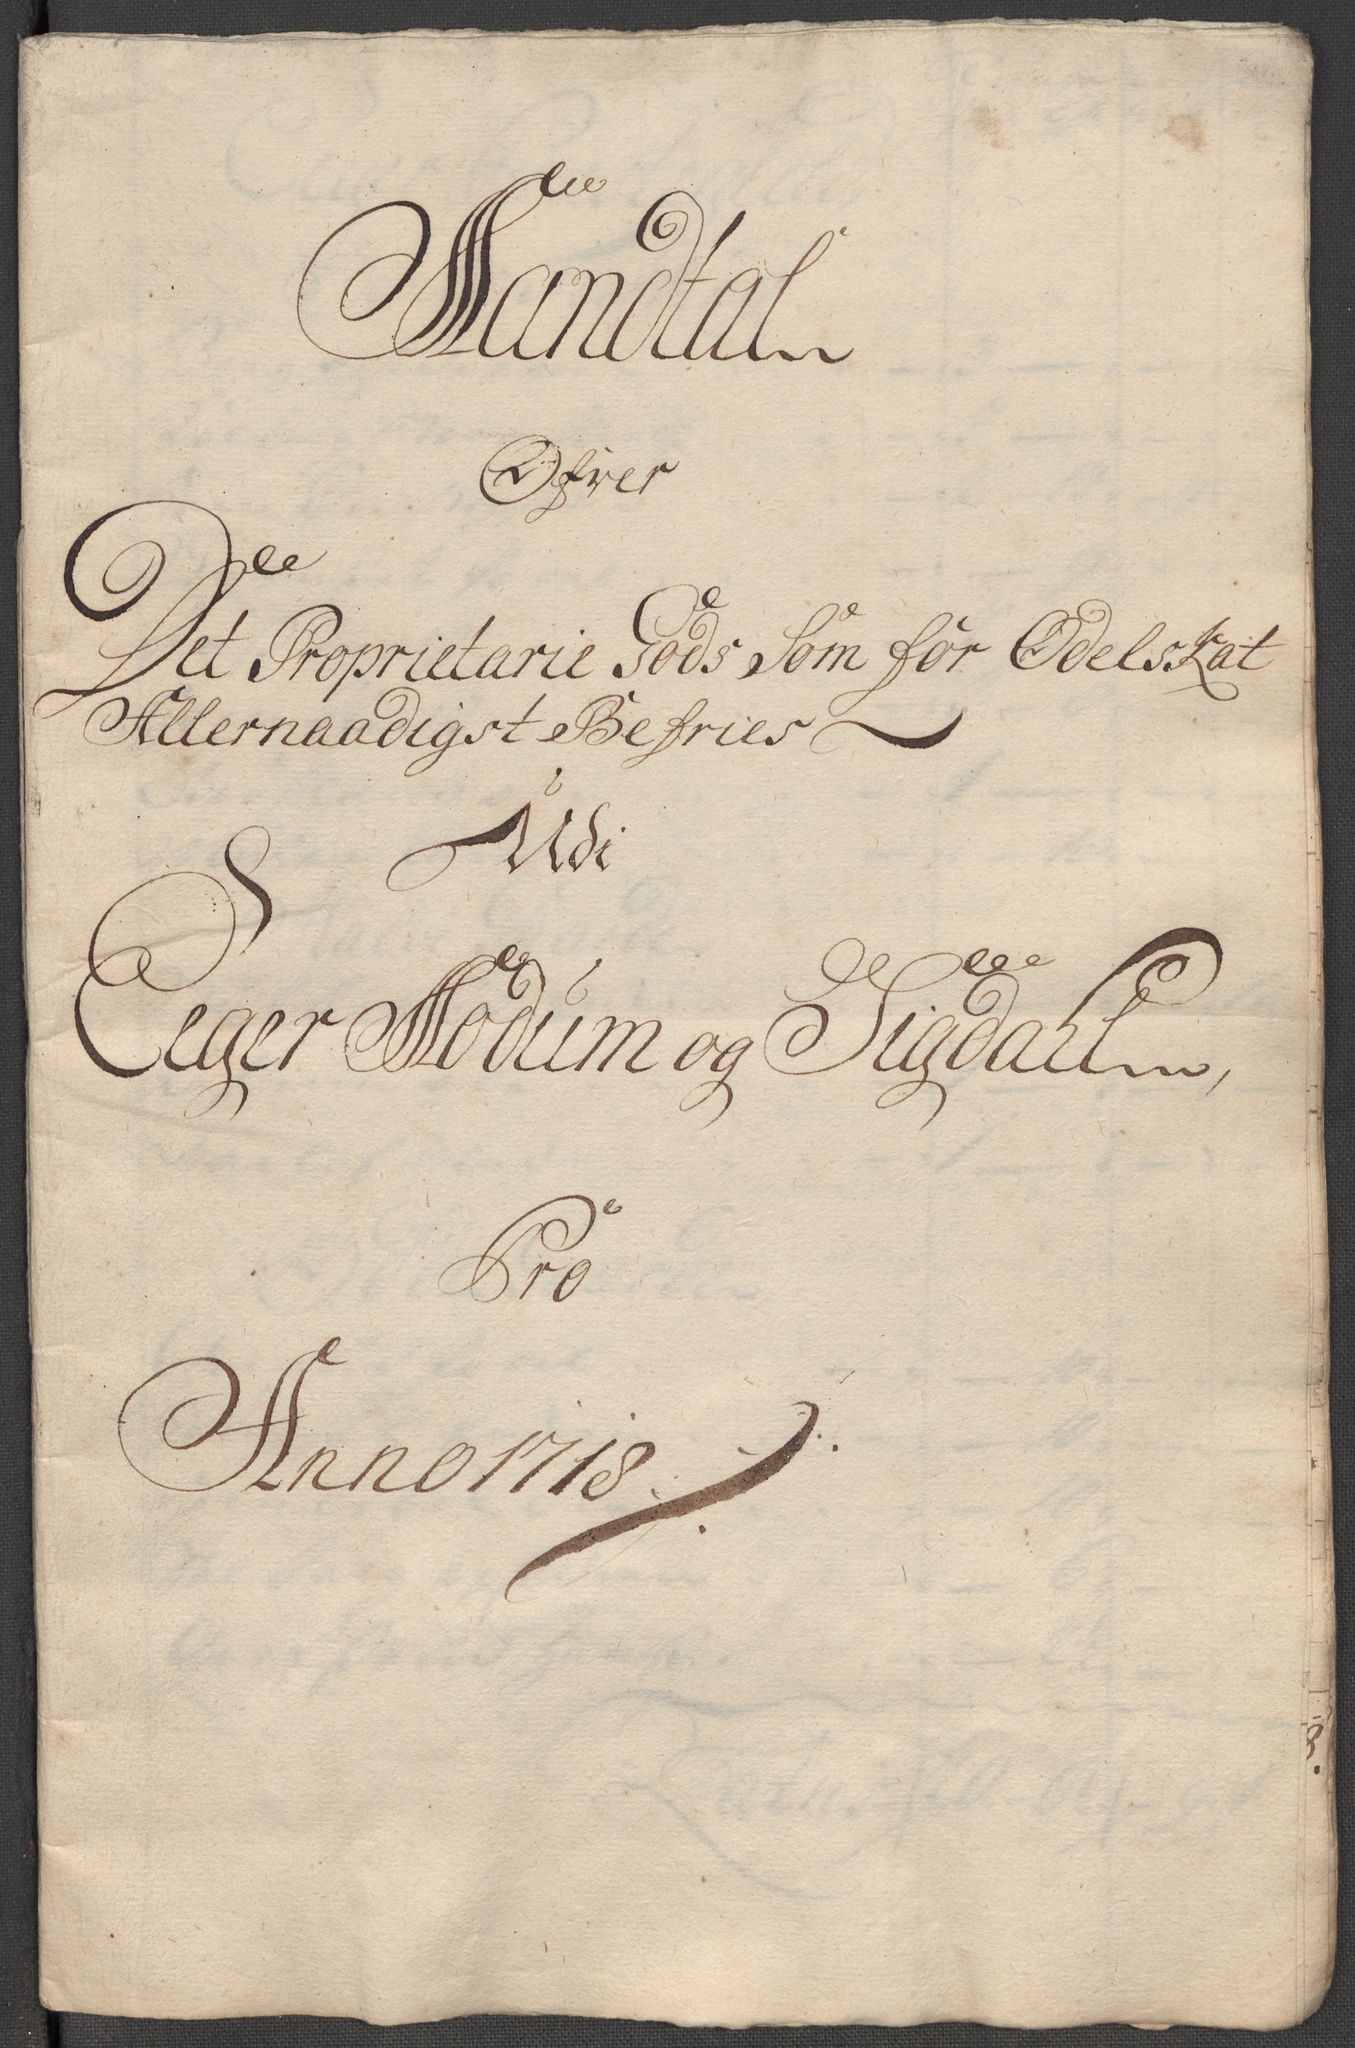 Mandtal
Ofver
Det Proprietarie Gods Som for OdelsKat
Allernaadigst Befries
Udi
Eeger Modum og Sigdahl,
Pro
Anno 1718
8.